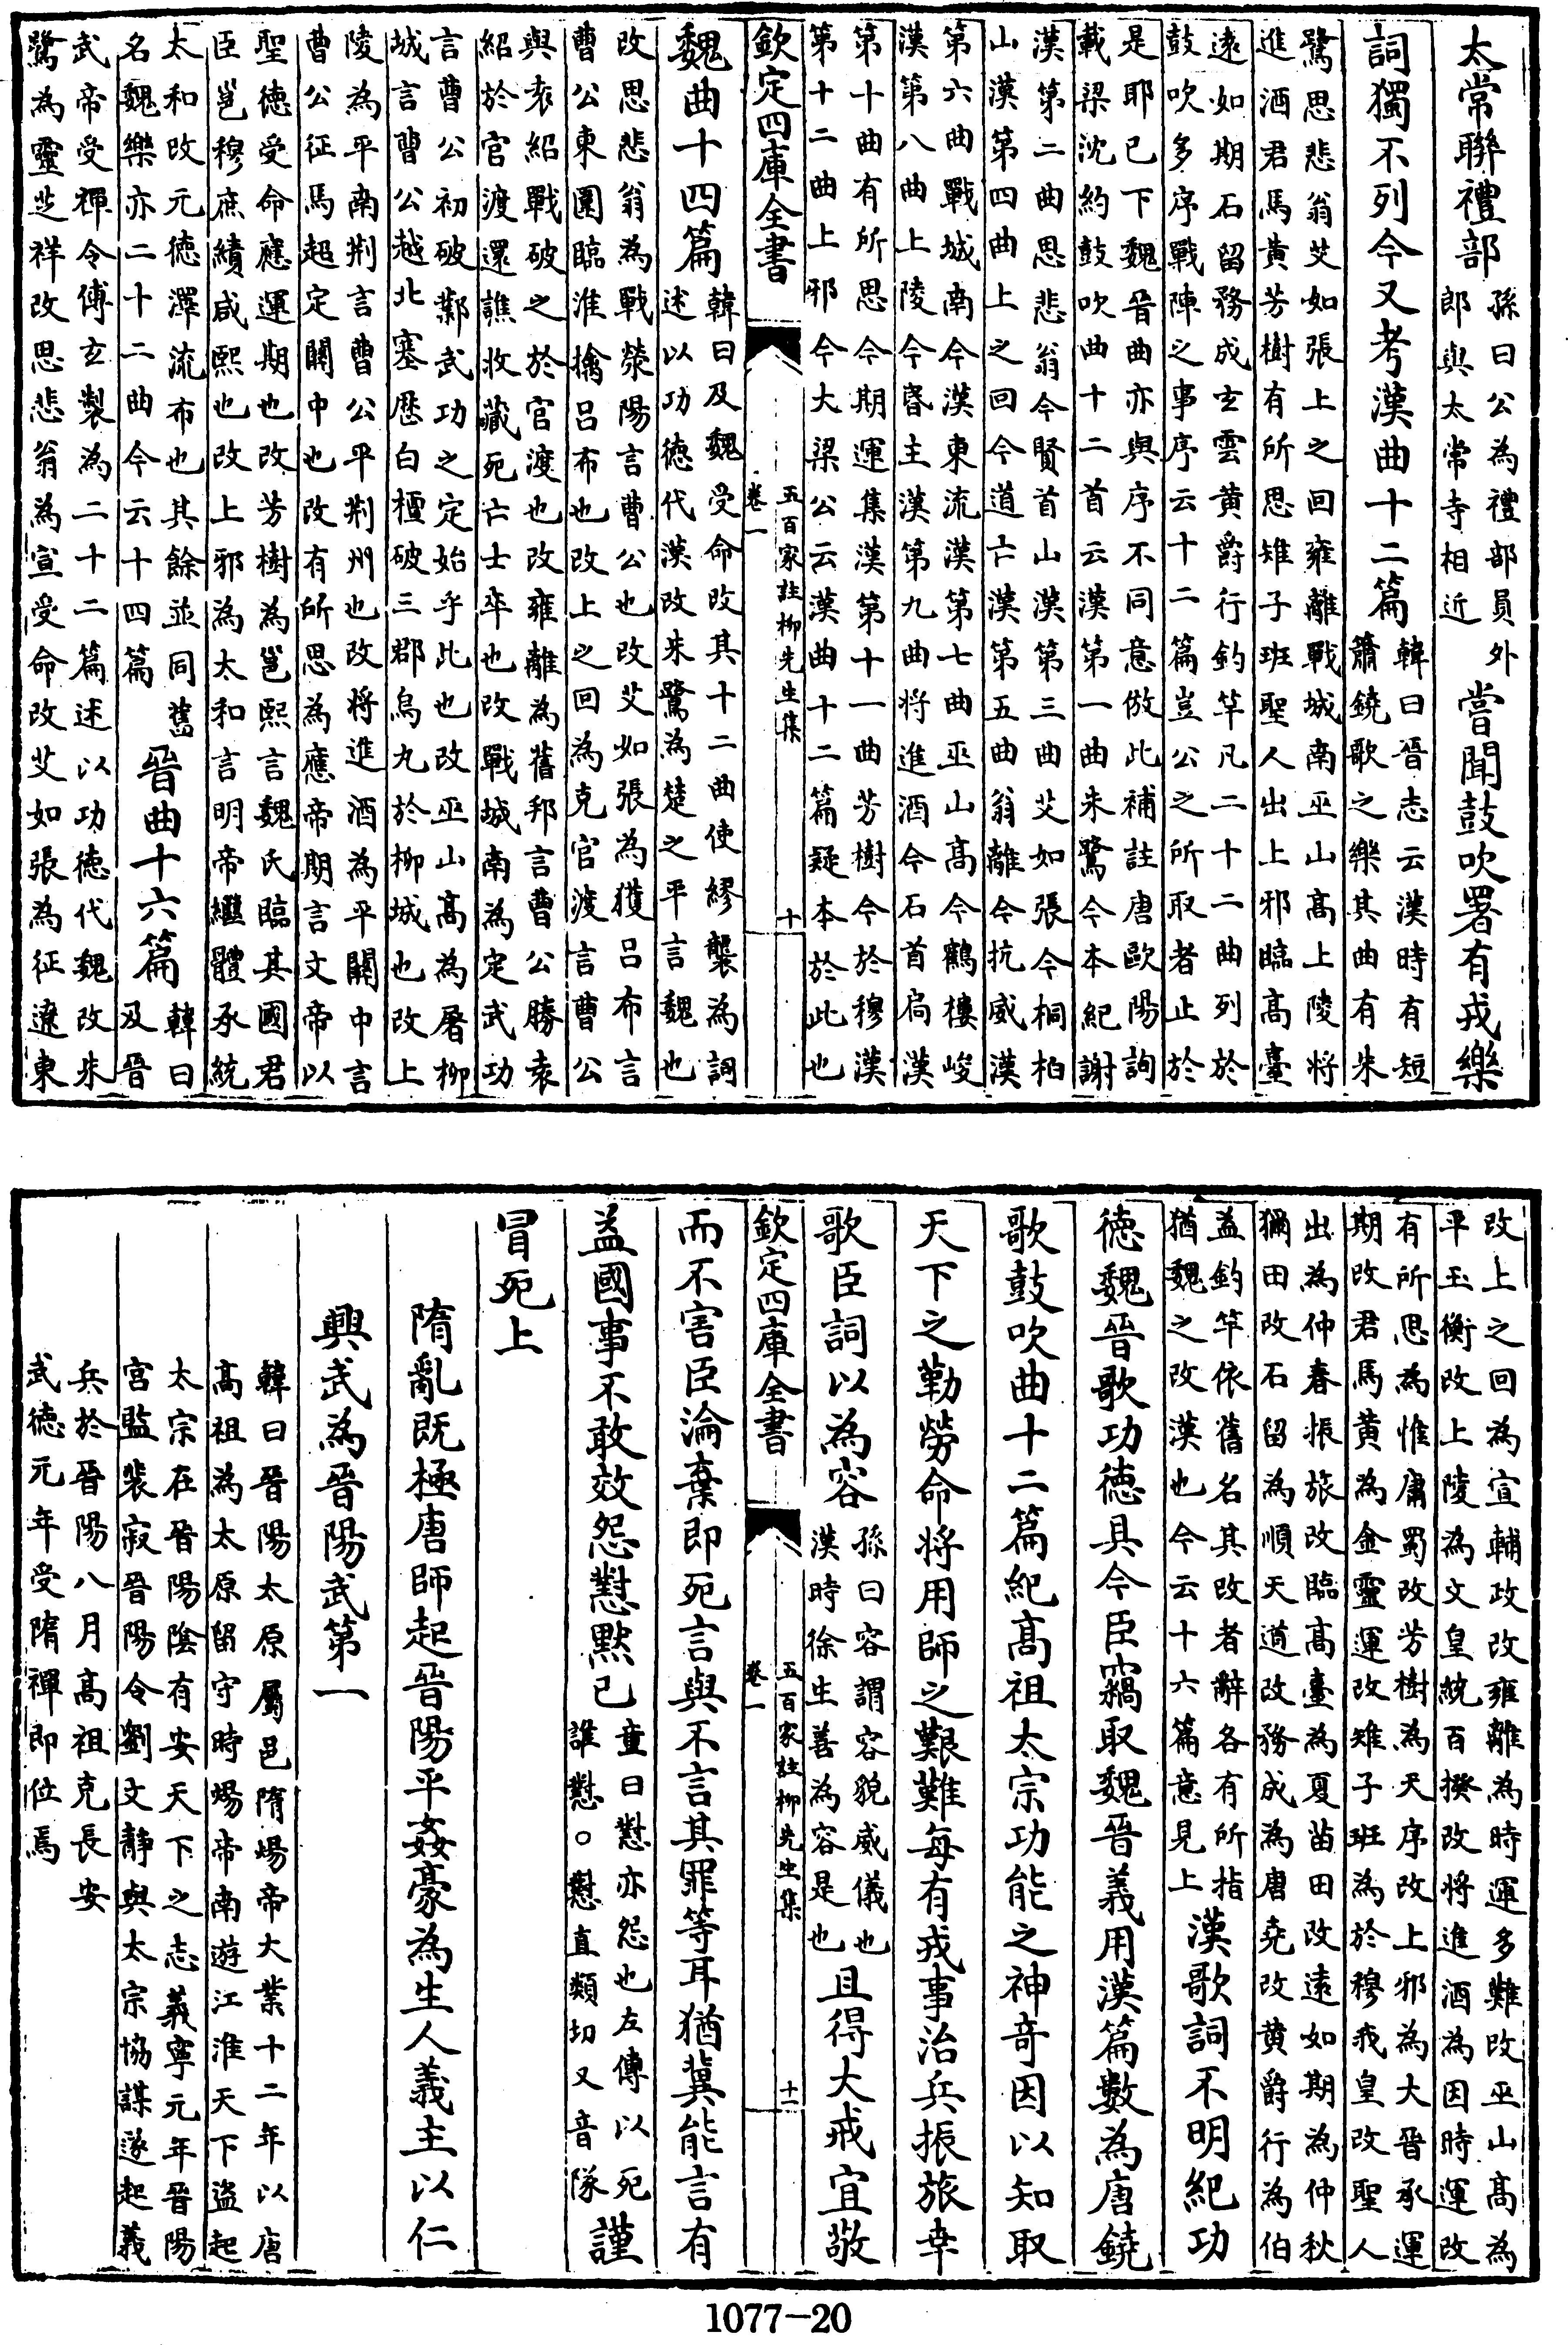 太常聯禮部孫曰公為禮部員外
郎與太常寺相近嘗聞鼓吹署有戎樂
詞獨不列今又考漢曲十二篇韓曰晉志云漢時有短
簫鐃歌之樂其曲有朱
鷺思悲翁艾如張上之回雍離戰城南巫山高上陵將
進酒君馬黃芳樹有所思雉子班聖人出上邪臨高臺
遠如期石留務成玄雲黃爵行釣竿凡二十二曲列於
鼓吹多序戰陣之事序云十二篇豈公之所取者止於
是耶已下魏晉曲亦與序不同意倣此補註唐歐陽詢
載梁沈約鼓吹曲十二首云漢第一曲朱鷺今本紀謝
漢第二曲思悲翁今賢首山漢第三曲艾如張今桐柏
山漢第四曲上之回今道亡漢第五曲翁離今抗威漢
第六曲戰城南今漢東流漢第七曲巫山高今鶴樓峻
漢第八曲上陵今昏主漢第九曲將進酒今石首局漢
第十曲有所思今期運集漢第十一曲芳樹今於穆漢
第十二曲上邪今大梁公云漢曲十二篇疑本於此也
欽定四庫全書
卷一
五百家註柳先生集
十
魏曲十四篇韓曰及魏受命改其十二曲使繆襲為詞
述以功德代漢改朱鷺為楚之平言魏也
改思悲翁為戰滎陽言曹公也改艾如張為獲呂布言
曹公東圍臨淮擒呂布也改上之回為克官渡言曹公
與袁紹戰破之於官渡也改雍離為舊邦言曹公勝袁
紹於官渡還譙收藏死亡士卒也改戰城南為定武功
言曹公初破鄴武功之定始乎此也改巫山高為屠柳
城言曹公越北塞歷白檀破三郡烏九於柳城也改上
陵為平南荊言曹公平荊州也改將進酒為平關中言
曹公征馬超定關中也改有所思為應帝期言文帝以
聖德受命應運期也改芳樹為邕熙言魏氏臨其國君
臣邕穆庶績咸熙也改上邪為太和言明帝繼體承統
太和改元德澤流布也其餘並同舊
名魏樂亦二十二曲今云十四篇晉曲十六篇韓曰
及晉
武帝受禪令傅玄製為二十二篇述以功德代魏改朱
鷺為靈芝祥改思悲翁為宣受命改艾如張為征遼東
改上之回為宣輔政改雍離為時運多難改巫山高為
平玉衡改上陵為文皇統百揆改將進酒為因時運改
有所思為惟庸蜀改芳樹為天序改上邪為大晉承運
期改君馬黃為金靈運改雉子班為於穆我皇改聖人
出為仲春振旅改臨高臺為夏苗田改遠如期為仲秋
獮田改石留為順天道改務成為唐堯改黃爵行為伯
益釣竿依舊名其改者辭各有所指
猶魏之改漢也今云十六篇意見上漢歌詞不明紀功
德魏晉歌功德具今臣竊取魏晉義用漢篇數為唐鐃
歌鼓吹曲十二篇紀高祖太宗功能之神奇因以知取
天下之勤勞命將用師之艱難每有戎事治兵振旅幸
歌臣詞以為容孫曰容謂容貌威儀也
漢時徐生善為容是也且得大戒宜敬
欽定四庫全書
卷一
五百家註柳先生集
十一
而不害臣淪棄即死言與不言其罪等耳猶冀能言有
益國事不敢效怨懟默已童曰懟亦怨也左傳以死
誰懟○懟直類切又音隊謹
冒死上
隋亂既極唐師起晉陽平姦豪為生人義主以仁
興武為晉陽武第一
韓曰晉陽太原屬邑隋煬帝大業十二年以唐
高祖為太原留守時煬帝南遊江淮天下盜起
太宗在晉陽陰有安天下之志義寧元年晉陽
宮監裴寂晉陽令劉文靜與太宗協謀遂起義
兵於晉陽八月高祖克長安
武德元年受隋禪即位焉
1077-20